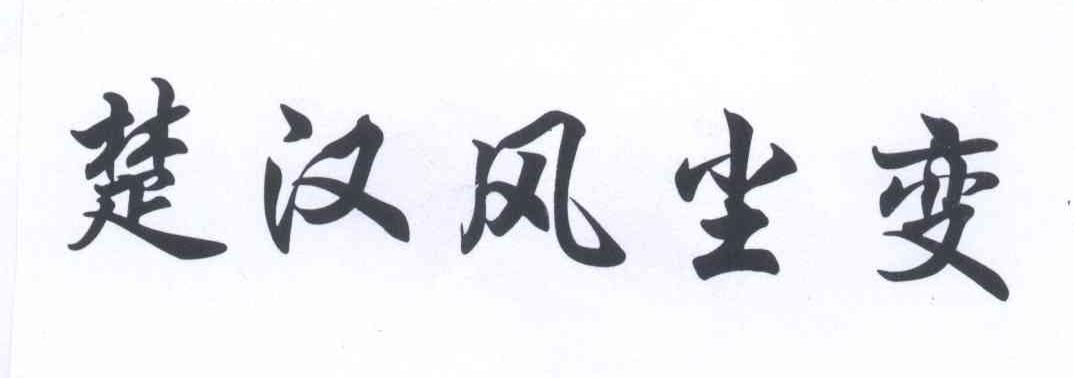 楚汉风尘变